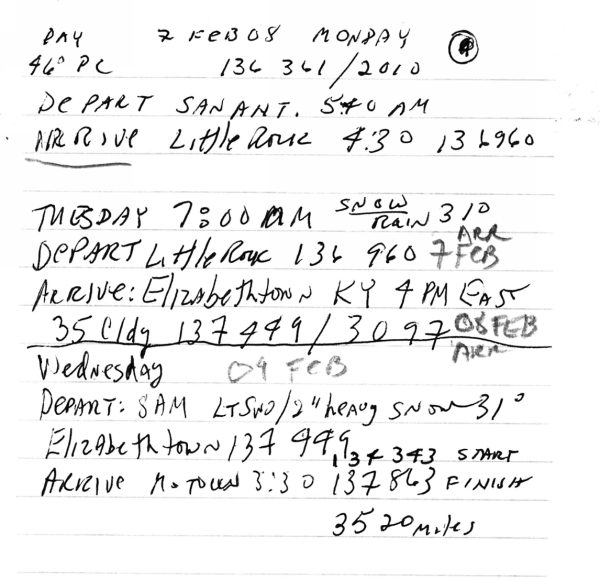 DAY 7 FEB 08 MONDAY 4
46° PC 136 361/2010
DEPART SAN ANT. 5:40 AM
ARRIVE Little Rock 4:30 136960
TUESDAY 7:00 AM SNOW/RAIN 31°
DEPART Little Rock 136 960 7 FEB ARR
ARRIVE: Elizabethtown KY 4 PM EAST
35 Cldy 137 449/3097 08 FEB ARR
Wednesday 09 FEB
DEPART: 8AM LT SNO/2" heavy SNOW 31°
Elizabethtown 137 449
134 343 START
ARRIVE M-TOWN 3:30 137863 FINISH
3520 miles